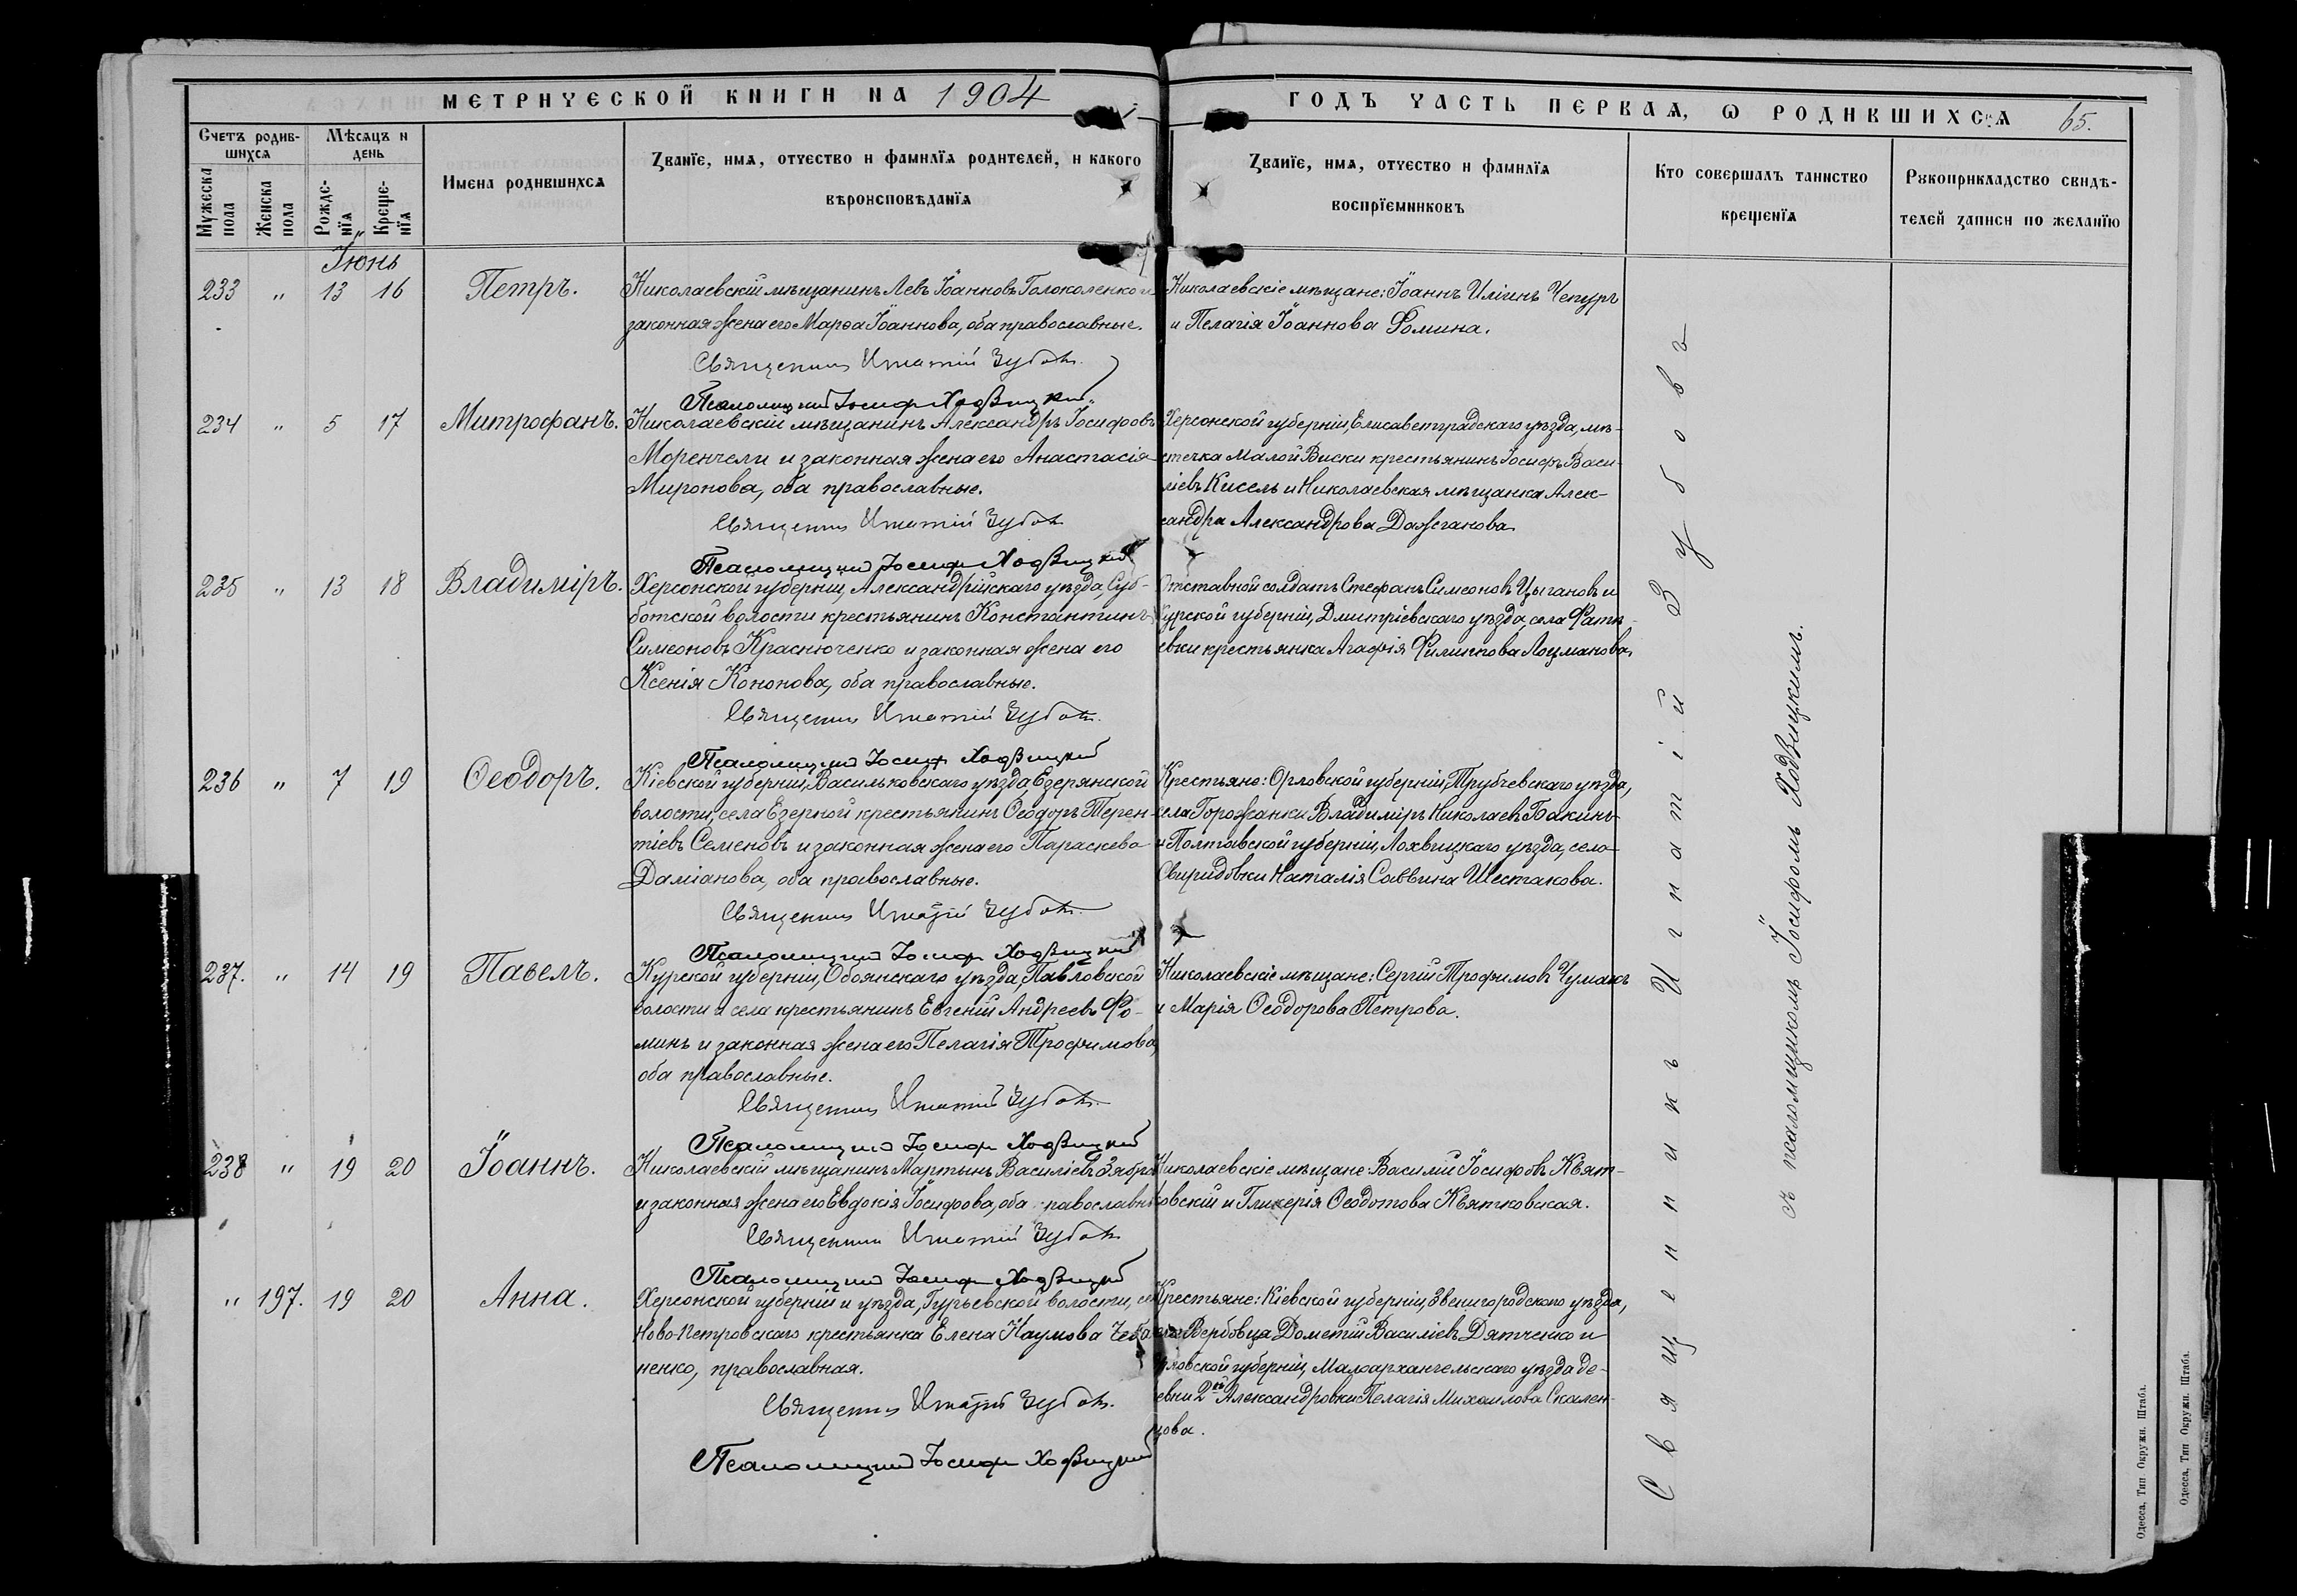 МЕТРИЧЕСКОЙ КНИГИ НА 1904
ГОДЪ ЧАСТЬ ПЕРВАЯ, Ѡ РОДИВШИХСЯ 65.
Счетъ родив-
шихся
Мѣсяцъ и
день
Мужеска
пола
Женска
пола
Рожде-
нїя
Креще-
нїя
Имена родившихся
Званїе, имя, отчество и фамилїя родителей, и какого
вѣроисповѣданїя
Званїе, имя, отчество и фамилїя
воспрїемниковъ
Кто совершалъ таинство
крещенїя
Рукоприкладство свидѣ-
телей записи по желанїю
Іюнь
233 " 13 16 Петръ.
Николаевскій мѣщанинъ Левъ Іоанновъ Голоколенко и
законная жена его Марѳа Іоаннова, оба православные.
Священникъ Игнатій Зубовъ.
Псаломщикъ Іосифъ Ходвицкій
Николаевскіе мѣщане: Іоаннъ Иліинъ Чепуръ
и Пелагія Іоаннова Фомина.
234 " 5 17 Митрофанъ.
Николаевскій мѣщанинъ Александръ Іосифовъ
Моренчели и законная жена его Анастасія
Миронова, оба православные.
Священникъ Игнатій Зубовъ
Псаломщикъ Іосифъ Ходвицкій
Херсонской губерніи, Елисаветградскаго уѣзда, мѣ-
стечка Малой Виски крестьянинъ Іосифъ Васи-
ліевъ Кисель и Николаевская мѣщанка Алек-
сандра Александрова Дожганова.
235 " 13 18 Владиміръ.
Херсонской губерніи, Александрійскаго уѣзда, Суб-
ботской волости крестьянинъ Константинъ
Симеоновъ Краснюченко и законная жена его
Ксенія Кононова, оба православные.
Священникъ Игнатій Зубовъ.
Псаломщикъ Іосифъ Ходвицкій
Отставной солдатъ Стефанъ Симеоновъ Цыгановъ и
Курской губерніи, Дмитріевскаго уѣзда, села Фатѣ-
евки крестьянка Агафія Филиппова Лоцманова.
236 " 7 19 Ѳеодоръ.
Кіевской губерніи, Васильковскаго уѣзда, Езерянской
волости, села Езерной крестьянинъ Ѳеодоръ Терен-
тіевъ Семеновъ и законная жена его Параскева
Даміанова, оба православные.
Священникъ Игнатій Зубовъ.
Псаломщикъ Іосифъ Ходвицкій
Крестьяне: Орловской губерніи, Трубчевскаго уѣзда,
села Горожанки Владиміръ Николаевъ Бакинъ
и Полтавской губерніи, Лохвицкаго уѣзда, села
Свиридовки Наталія Саввина Шестакова.
237. " 14 19 Павелъ.
Курской губерніи, Обоянскаго уѣзда, Павловской
волости и села крестьянинъ Евгеній Андреевъ Фо-
минъ и законная жена его Пелагія Трофимова,
оба православные.
Священникъ Игнатій Зубовъ.
Псаломщикъ Іосифъ Ходвицкій
Николаевскіе мѣщане: Сергій Трофимовъ Чумакъ
и Марія Ѳеодорова Петрова.
238 " 19 20 Іоаннъ.
Николаевскій мѣщанинъ Мартынъ Василіевъ
и законная жена его Евдокія Іосифова, оба православны
Священникъ Игнатій Зубовъ
Псаломщикъ Іосифъ Ходвицкій
Николаевскіе мѣщане: Василій Іосифовъ Квят-
ковскій и Гликерія Ѳеодотова Квятковская.
" 197. 19 20 Анна.
Херсонской губерніи и уѣзда, Гурьевской волости, се
Ново-Петровскаго крестьянка Елена Наумова Чеба
ненко, православная.
Священникъ Игнатій Зубовъ.
Псаломщикъ Іосифъ Ходвицкій
Крестьяне: Кіевской губерніи, Звенигородскаго уѣзда,
Вербовца Дометій Василіевъ Дятченко и
Орловской губерніи, Малоархангельскаго уѣзда де-
евни 2й Александровки Пелагія Михаилова Скален-
цова.
Священникъ Игнатій Зубовъ
съ псаломщикомъ Іосифомъ Ходвицкимъ.
Одесса, Тип. Окружн. Штаба.
Одесса, Тип. Окружн. Штаба.